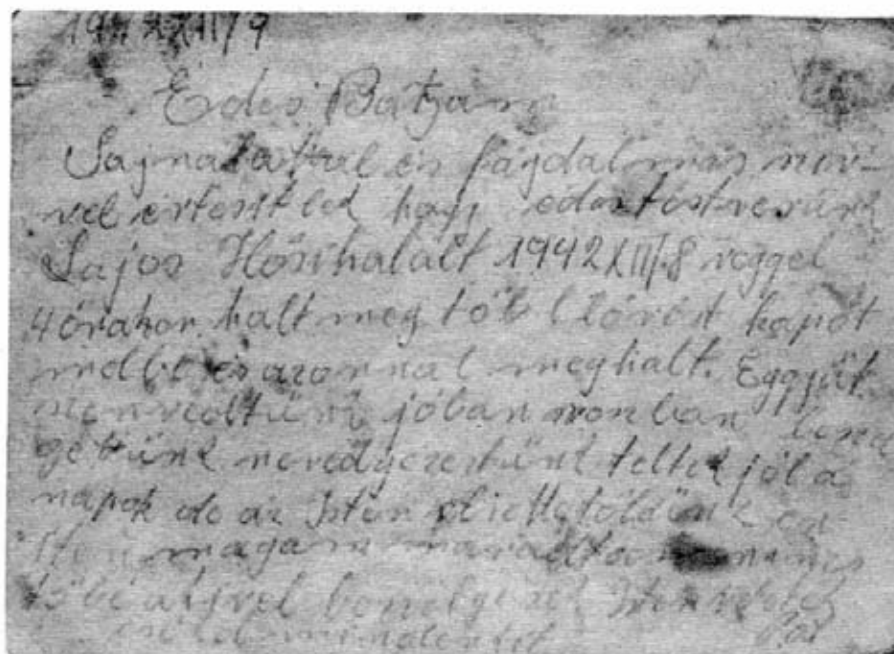 1942 XII/9
Édes Bátyám
Sajnalattal és fájdalmas szív-
vel értesitlek hogy édestestverünk
Lajos Hősihalált 1942 XII/8 reggel
4 órakor halt meg több lövést kapot
mellbe és azonnal meghalt. Eggyüt
szenvedtünk jóban roszban beszé
getünk nevedgezestünk teltek jól a
napok de az Isten elvette tőlünk és
magam maradtam nincs
többé akivel beszelgesek Isten veled